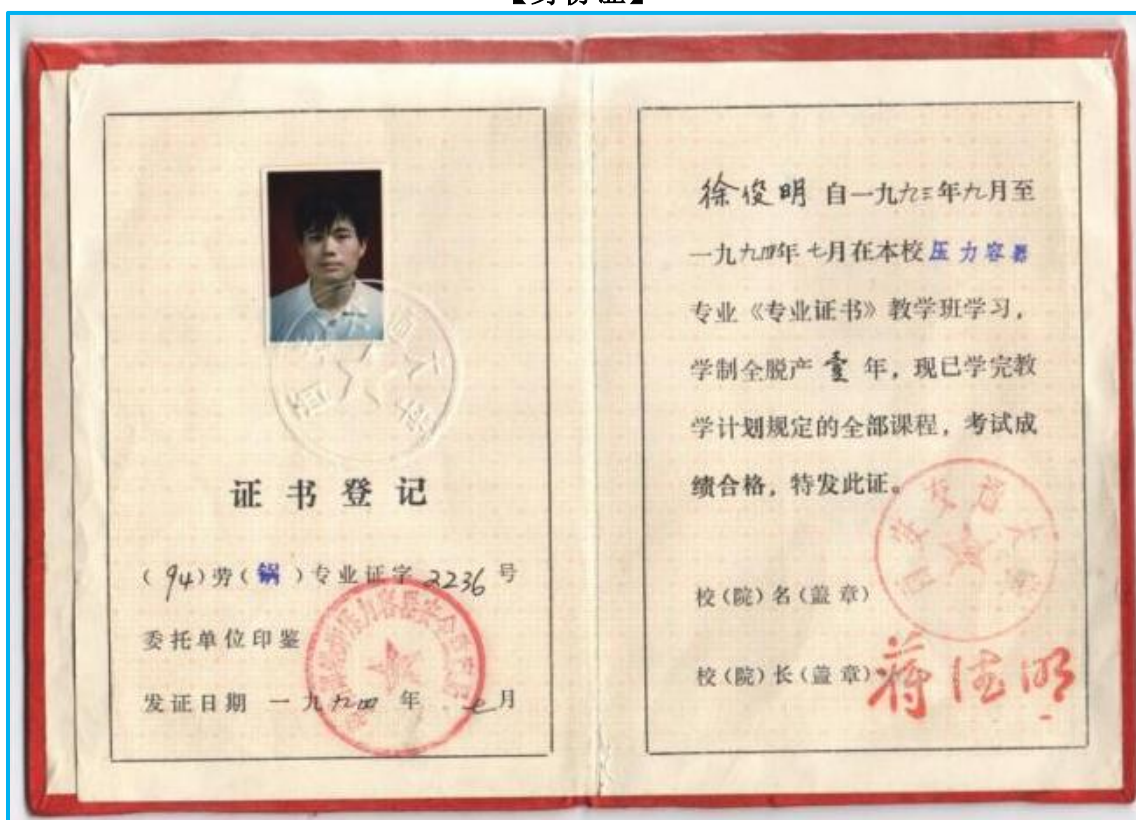 证书登记
(94)劳(锅)专业证字3236号
委托单位印鉴
发证日期 一九九四年 七月
徐俊明 自一九九三年九月至
一九九四年七月在本校压力容器
专业《专业证书》教学班学习，
学制全脱产壹年，现已学完教
学计划规定的全部课程，考试成
绩合格，特发此证。
西安交通大学
校(院)名(盖章)
校(院)长(盖章)
蒋德明